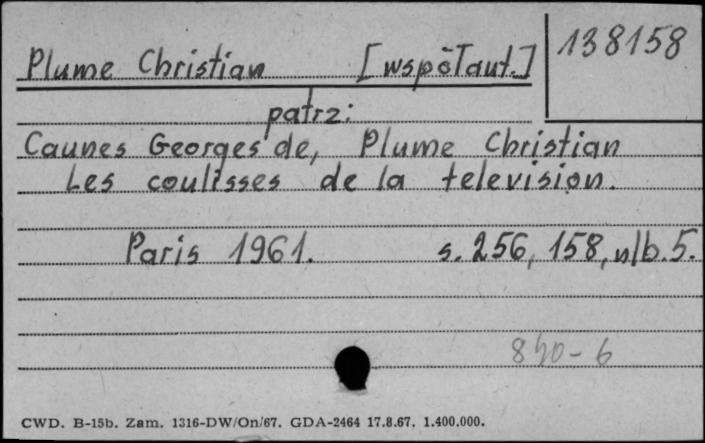 138158
Plume Christian [współaut.]
patrz:
Caunes Georges de, Plume Christian
Les coulisses de la television.
Paris 1961. s. 256, 158, nlb. 5.
840-6
CWD. B-15b. Zam. 1316-DW/On/67. GDA-2464 17.8.67. 1.400.000.